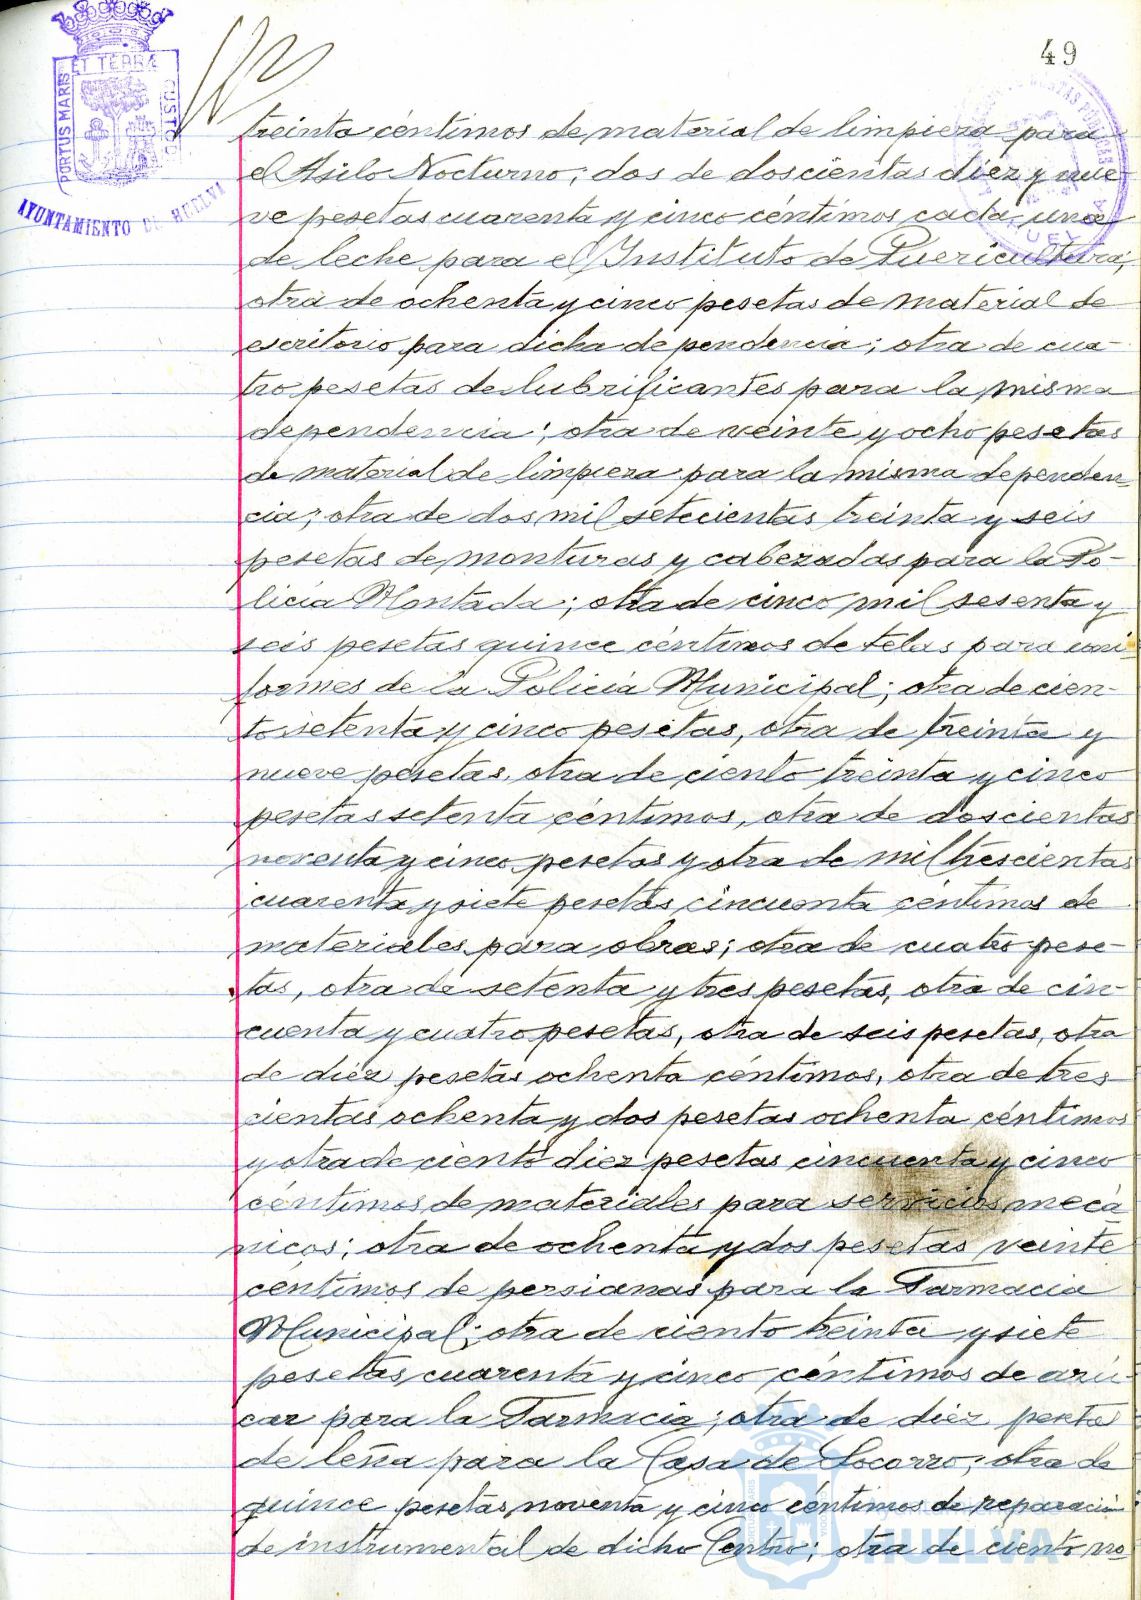 49
PORTUS MARIS ET TERRÆ CUSTOD
AYUNTAMIENTO DE HUELVA
treinta céntimos de material de limpieza para
el Asilo Nocturno; dos de doscientas diéz y nue-
ve pesetas cuarenta y cinco céntimos cada una
de leche para el Instituto de Puericultura;
otra de ochenta y cinco pesetas de material de
escritorio para dicha dependencia; otra de cua-
tro pesetas de lubrificantes para la misma
dependencia; otra de veinte y ocho pesetas
de material de limpieza para la misma dependen-
cia; otra de dos mil setecientas treinta y seis
pesetas de monturas y cabezadas para la Po-
licía Montada; otra de cinco mil sesenta y
seis pesetas quince céntimos de telas para uni-
formes de la Policía Municipal; otra de cien-
to setenta y cinco pesetas, otra de treinta y
nueve pesetas, otra de ciento treinta y cinco
pesetas setenta céntimos, otra de doscientas
noventa y cinco pesetas y otra de mil trescientas
cuarenta y siete pesetas cincuenta céntimos de
materiales para obras; otra de cuatro pese-
tas, otra de setenta y tres pesetas, otra de cin-
cuenta y cuatro pesetas, otra de seis pesetas, otra
de diéz pesetas ochenta céntimos, otra de tres
cientas ochenta y dos pesetas ochenta céntimos
y otra de ciento diez pesetas cincuenta y cinco
céntimos de materiales para servicios mecá
nicos; otra de ochenta y dos pesetas veinte
céntimos de persianas para la Farmacia
Municipal; otra de ciento treinta y siete
pesetas cuarenta y cinco céntimos de azú-
car para la Farmacia; otra de diéz peseta
de leña para la Casa de Socorro; otra de
quince pesetas noventa y cinco céntimos de reparación
de instrumental de dicho Centro; otra de ciento no
Ayuntamiento de
HUELVA